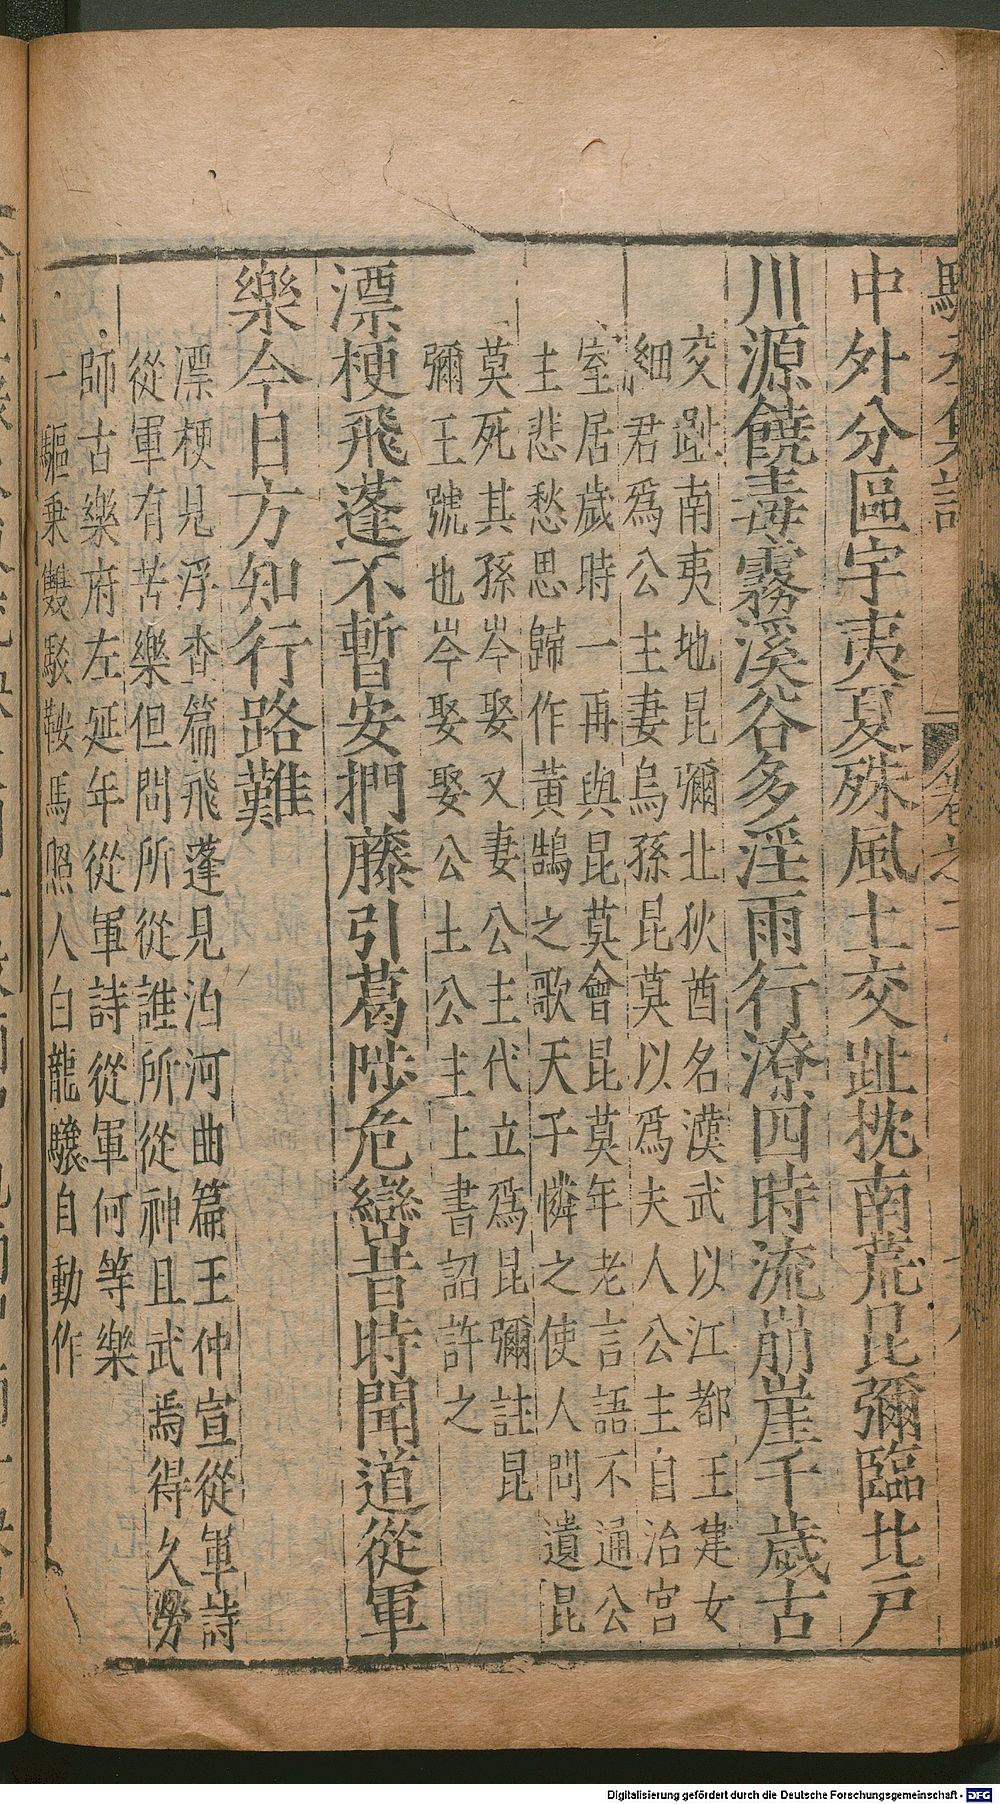 中外分區宇夷夏殊風土交趾枕南荒昆彌臨北戶
川源饒毒霧溪谷多淫雨行潦四時流崩崖千歲古
交趾南夷地昆彌北狄酋名漢武以江都王建女
細君為公主妻烏孫昆莫以為夫人公主自治宮
室居歲時一再與昆莫會昆莫年老言語不通公
主悲愁思歸作黃鵠之歌天子憐之使人問遺昆
莫死其孫岑娶又妻公主代立為昆彌註昆
彌王號也岑娶娶公主公主上書詔許之
漂梗飛蓬不暫安捫藤引葛陟危巒昔時聞道從軍
樂今日方知行路難
漂梗見浮查篇飛蓬見泊河曲篇王仲宣從軍詩
從軍有苦樂但問所從誰所從神且武焉得久勞
師古樂府左延年從軍詩從軍何等樂
一驅乗雙駁鞍馬照人白龍驤自動作
卷之二
Digitalisierung gefördert durch die Deutsche Forschungsgemeinschaft - DFG